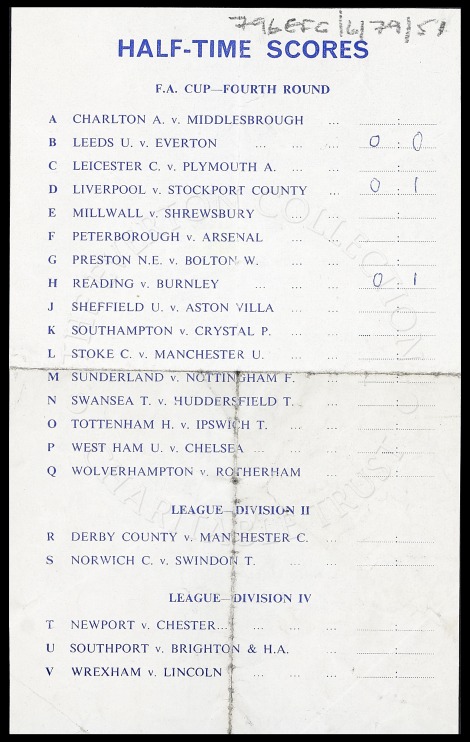 796EFC/6/79/51
HALF-TIME SCORES
F.A. CUP—FOURTH ROUND
A CHARLTON A. v. MIDDLESBROUGH ... :
B LEEDS U. v. EVERTON ... ... 0 : 0
C LEICESTER C. v. PLYMOUTH A. ... :
D LIVERPOOL v. STOCKPORT COUNTY ... 0 : 1
E MILLWALL v. SHREWSBURY ... ... :
F PETERBOROUGH v. ARSENAL ... ... :
G PRESTON N.E. v. BOLTON W. ... ... :
H READING v. BURNLEY ... ... ... 0 : 1
J SHEFFIELD U. v. ASTON VILLA ... :
K SOUTHAMPTON v. CRYSTAL P. ... ... :
L STOKE C. v. MANCHESTER U. ... ... :
M SUNDERLAND v. NOTTINGHAM F. ... :
N SWANSEA T. v. HUDDERSFIELD T. ... :
O TOTTENHAM H. v. IPSWICH T. ... :
P WEST HAM U. v. CHELSEA ... ... ... :
Q WOLVERHAMPTON v. ROTHERHAM ... :
LEAGUE—DIVISION II
R DERBY COUNTY v. MANCHESTER C. ... :
S NORWICH C. v. SWINDON T. ... ... :
LEAGUE—DIVISION IV
T NEWPORT v. CHESTER... ... ... ... :
U SOUTHPORT v. BRIGHTON & H.A. ... :
V WREXHAM v. LINCOLN ... ... ... :